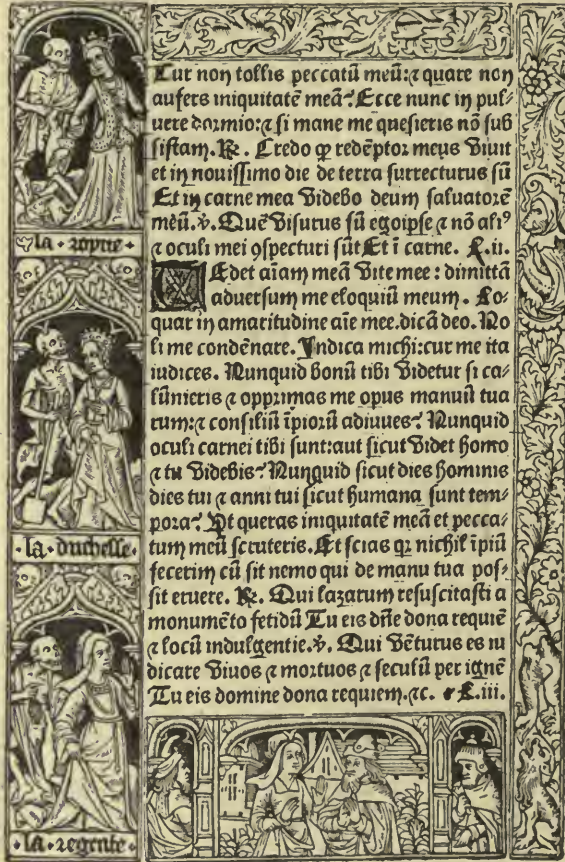 Cur non tollis peccatū meū:⁊ quare non
aufers iniquitatē meā? Ecce nunc in pul⸗
uere dormio:⁊ si mane me quesieris nō sub
sistam. ℟. Credo ꝙ redēptor meus viuit
et in nouissimo die de terra surrecturus sū
Et in carne mea videbo deum saluatorē
mēū. ℣. Quē visurus sū egoipse ⁊ nō aliꝰ
⁊ oculi mei ꝯspecturi sūt Et ī carne. L.ii.
Tedet aīam meā vite mee: dimittā
aduersum me eloquiū meum. Lo⸗
quar in amaritudine aīe mee. dicā deo. No
li me condēnare. Indica michi: cur me ita
iudices. Nunquid bonū tibi videtur si ca⸗
lūnieris ⁊ opprimas me opus manuū tua
rum:⁊ consiliū īpiorū adiuues? Nunquid
oculi carnei tibi sunt:aut sicut videt homo
⁊ tu videbis? Nunquid sicut dies hominis
dies tui ⁊ anni tui sicut humana sunt tem⸗
pora? Ut queras iniquitatē meā et pecca⸗
tum meū scruteris. Et scias qꝛ nichil īpiū
fecerim cū sit nemo qui de manu tua pos⸗
sit eruere. ℟. Qui lazarum resuscitasti a
monumēto fetidū Tu eis dñe dona requiē
⁊ locū indulgentie. ℣. Qui vēturus es iu
dicare viuos ⁊ mortuos ⁊ seculū per ignē
Tu eis domine dona requiem. ⁊c. L.iii.
la royne
la duchesse
la regente